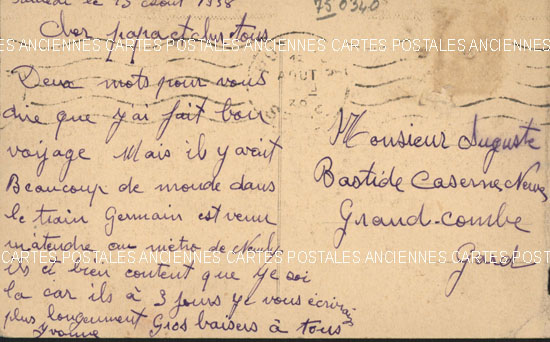 Samedi le 13 août 1938
75 0340
Cher papa et chers tous
Deux mots pour vous
dire que j'ai fait bon
voyage Mais il y avait
Beaucoup de monde dans
le train Germain est venu
m'atendre au métro de
ils ci bien content que je soi
la car ils à 3 jours je vous écrirais
plus longuement Gros baisers à tous
Yvonne
Monsieur Auguste
Bastide Caserne Neuve
Grand-combe
Gard
AOUT
CARTES POSTALES ANCIENNES CARTES POSTALES ANCIENNES CARTES POSTALES ANCIENNES